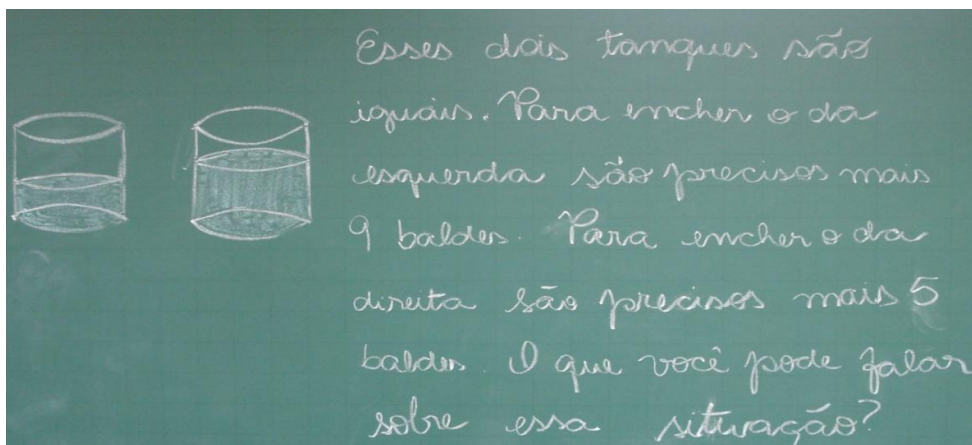 Esses dois tanques são
iguais. Para encher o da
esquerda são precisos mais
9 baldes. Para encher o da
direita são precisos mais 5
baldes. O que você pode falar
sobre essa situação?